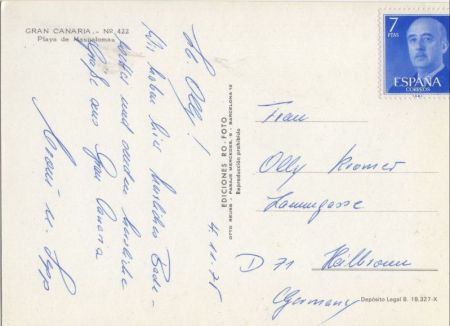 GRAN CANARIA.- Nº 422
Playa de Maspalomas
L. Olly!
Wir haben hier herrliches Bade-
wetter und senden herzliche
Grüße aus Gran Canaria
4.11.75
EDICIONES RO-FOTO
PASAJE MERCEDES, 9 - BARCELONA-12
Reproducción prohibida
7
PTAS
ESPAÑA
CORREOS
Frau
Olly Kromer
Lammgasse
D 71 Heilbronn
(Germany)
Depósito Legal B. 18.327-X